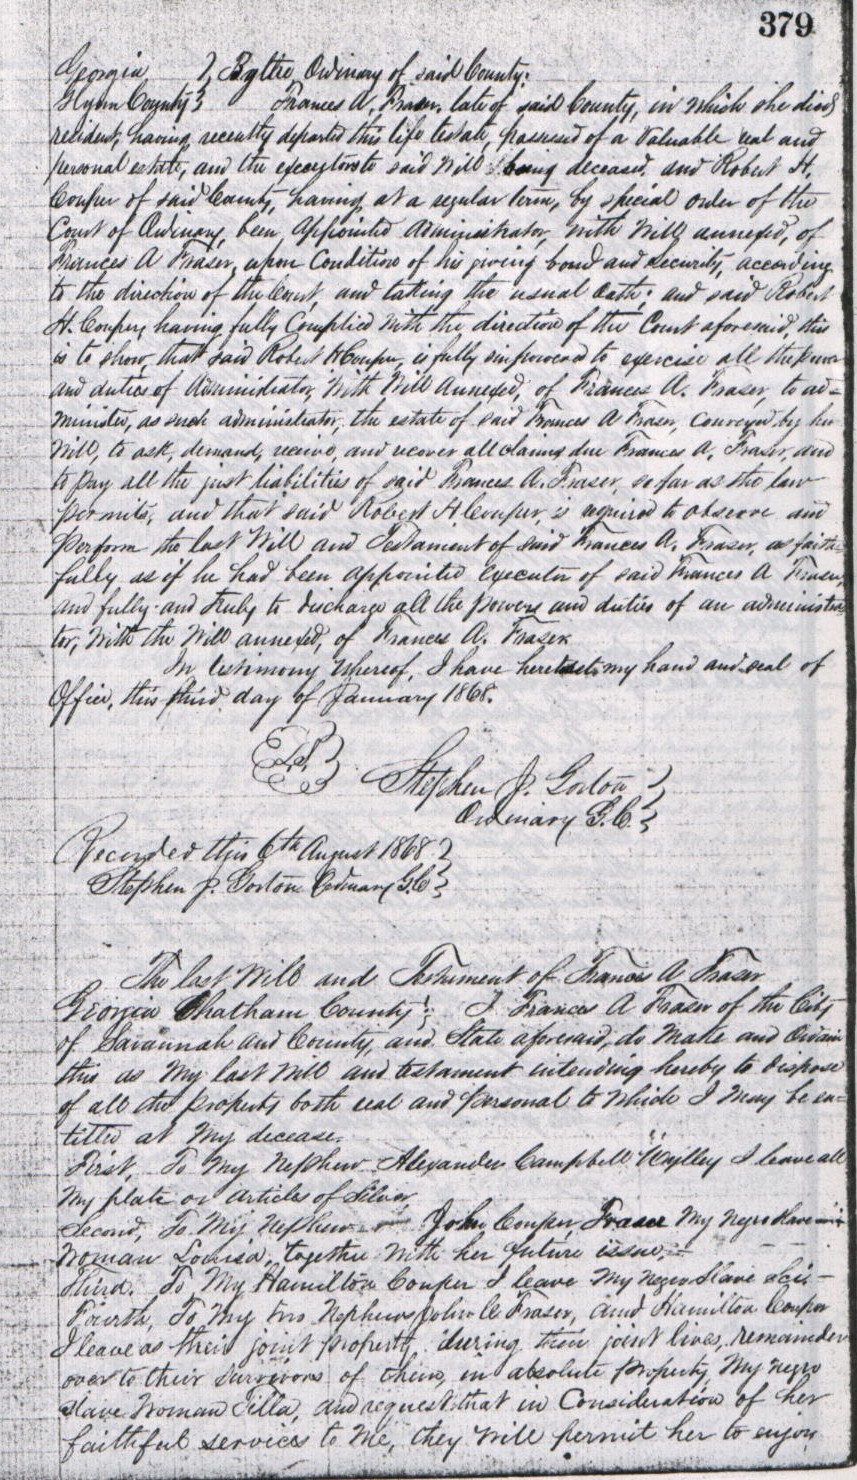 379
Georgia } By the Ordinary of said County.
Glynn County } Frances A. Fraser, late of said County, in which she died
resident, having recently departed this life testate, possessed of a Valuable real and
personal estate, and the executors to said Will being deceased, and Robert H.
Couper of said County, having, at a regular term, by special order of the
Court of Ordinary, been Appointed Administrator, with Will annexed, of
Frances A Fraser, upon Condition of his giving bond and security, according
to the direction of the Court, and taking the usual Oath; and said Robert
H. Couper, having fully Complied with the direction of the Court aforesaid, this
is to show, that said Robert H Couper, is fully empowered to exercise all the power
and duties of Administrator, With Will Annexed, of Frances A. Fraser, to ad=
minister, as such administrator, the estate of said Frances A Fraser, Conveyed by her
Will, to ask, demand, receive, and recover all claims due Frances A. Fraser, and
to pay all the just liabilities of said Frances A. Fraser, so far as the law
permits, and that said Robert H. Couper, is required to observe and
perform the last Will and Testament of said Frances A. Fraser, as faith=
fully as if he had been appointed executor of said Frances A Fraser,
and fully and truly to discharge all the powers and duties of an administra=
tor, With the Will annexed, of Frances A. Fraser
In testimony whereof, I have hereto set my hand and seal of
Office, this third day of January 1868.
L.S.
Stephen J. Gorton }
Ordinary G.C. }
Recorded this 6th August 1868 }
Stephen J. Gorton Ordinary G.C. }
The last Will and Testament of Frances A Fraser
Georgia Chatham County; I Frances A Fraser of the City
of Savannah and County, and State aforesaid, do Make and Ordain
this as My last Will and testament intending hereby to dispose
of all the property both real and personal to which I may be en=
titled at My decease.
First, To My Nephew Alexander Campbell Wylley I leave all
My plate or articles of Silver
Second, To My Nephew John Couper Fraser My Negro Slave
Woman Louisa, together with her future issue,
Third. To My Hamilton Couper I leave My negro Slave
Fourth, To My two Nephews John C Fraser, and Hamilton Couper
I leave as their joint property, during their joint lives, remainder
over to their survivors of them, in absolute property, My negro
slave Woman Tilla, and request that in Consideration of her
faithful services to Me, they will permit her to enjoy